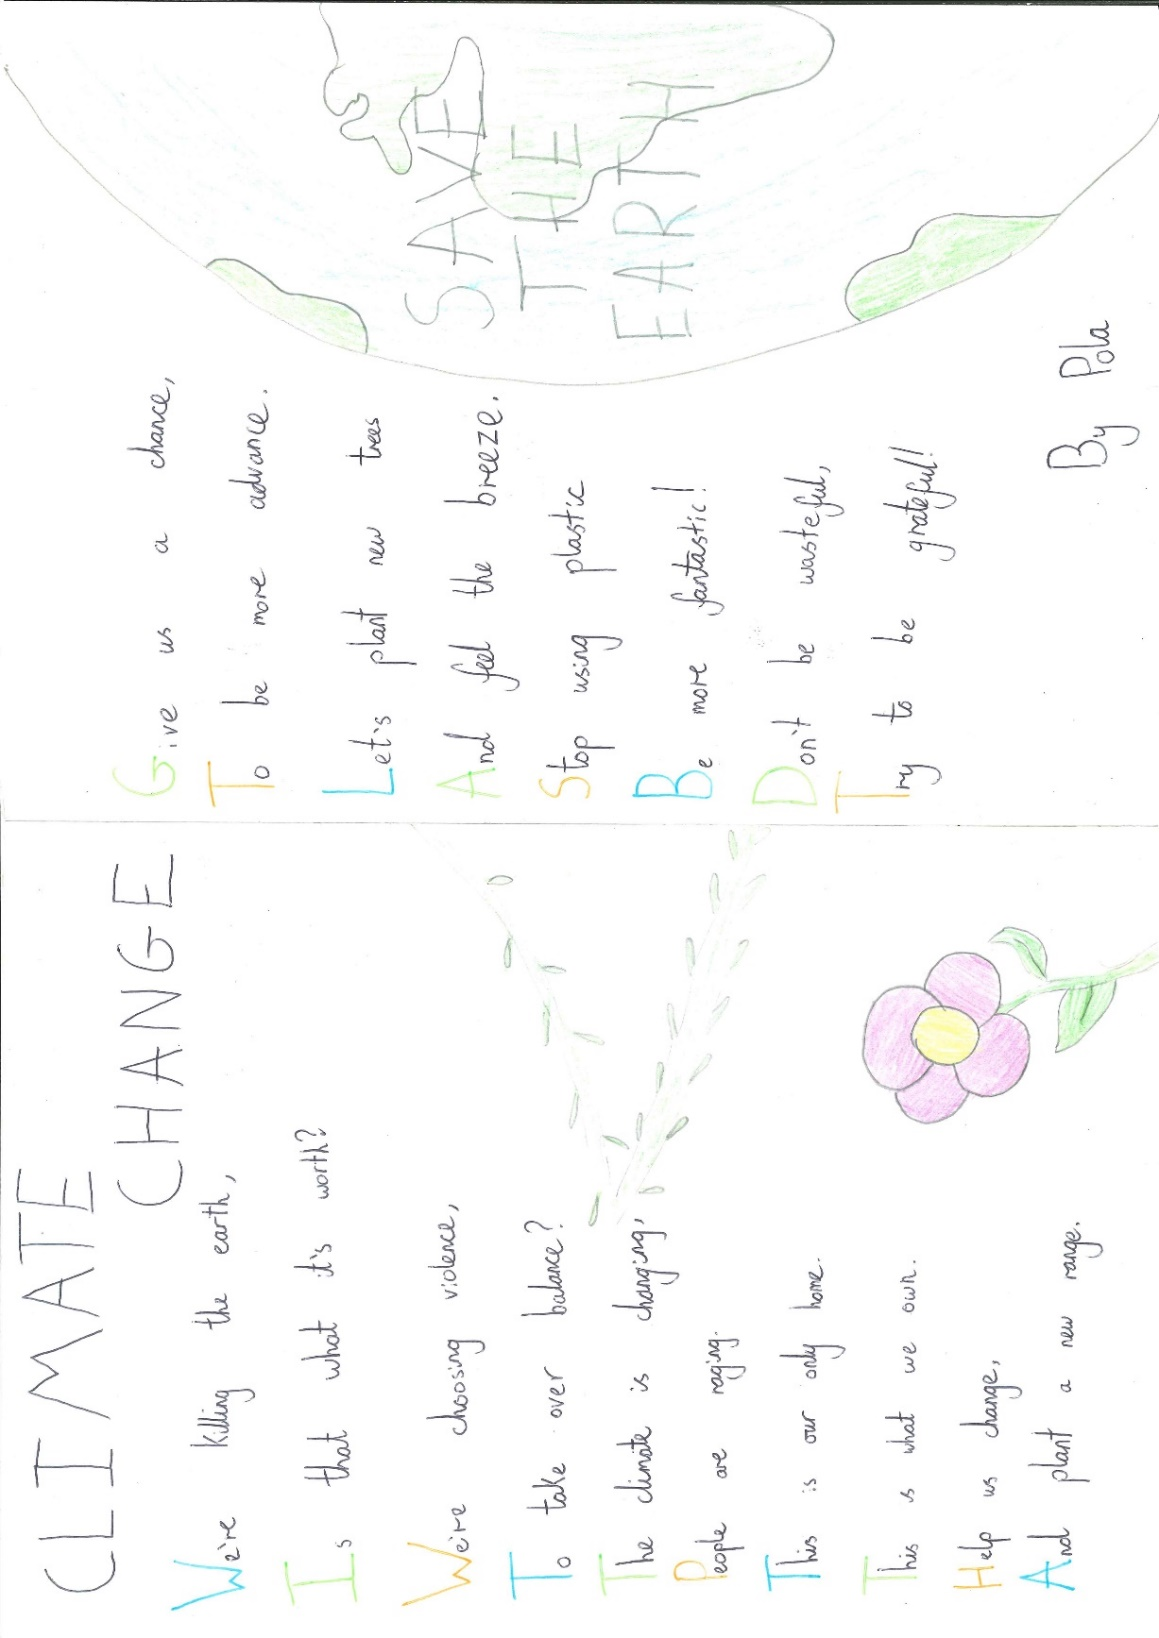 CLIMATE
CHANGE
We're killing the earth,
Is that what it's worth?
We're choosing violence,
To take over balance?
The climate is changing,
People are raging.
This is our only home.
This is what we own.
Help us change,
And plant a new range.
Give us a chance,
To be more advance.
Let's plant new trees
And feel the breeze.
Stop using plastic
Be more fantastic!
Don't be wasteful,
Try to be grateful!
SAVE
THE
EARTH
By Pola